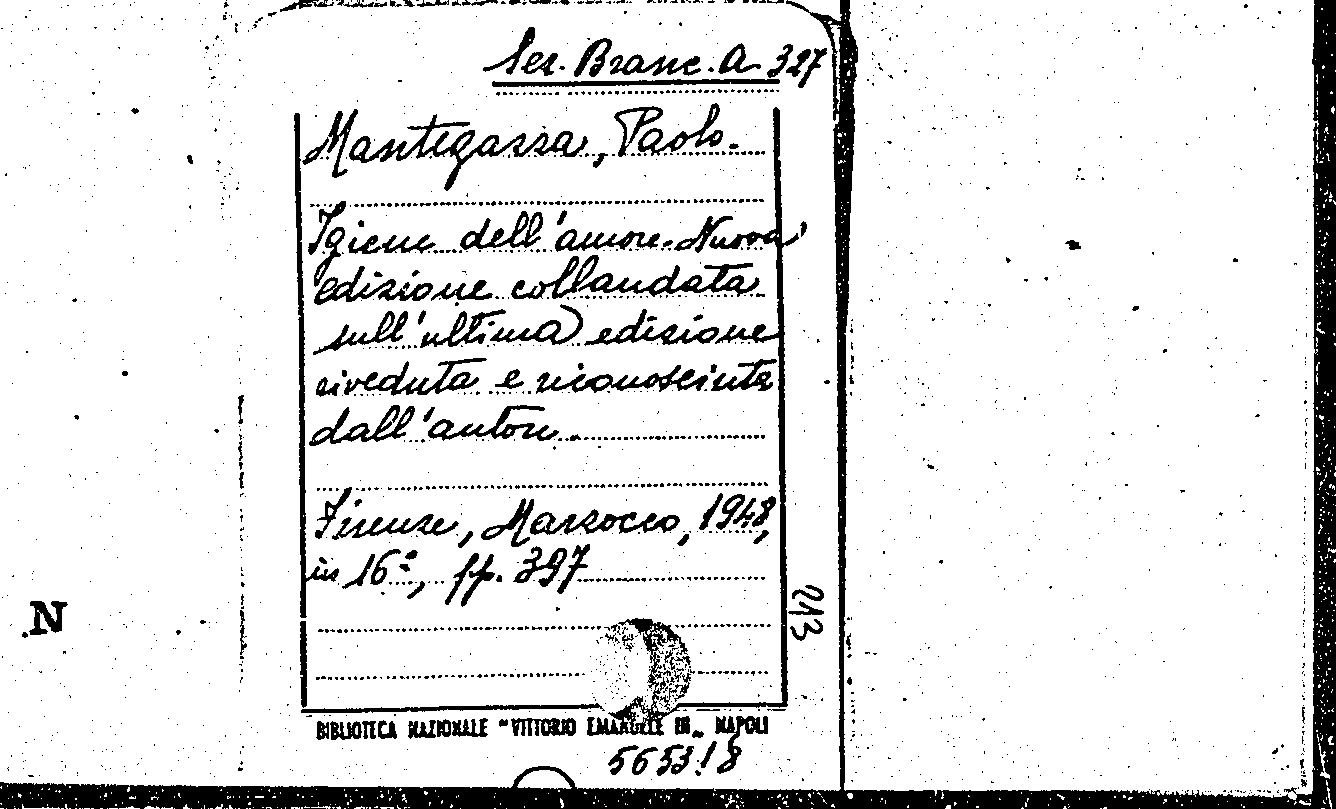 Sez. Branc. A 327
Mantegazza, Paolo.
Igiene dell'amore. Nuova
edizione collaudata
sull'ultima edizione
riveduta e riconosciuta
dall'autore.
Firenze, Marzocco, 1948,
in 16º, pp. 397
213
N
BIBLIOTECA NAZIONALE "VITTORIO EMANUELE III" NAPOLI